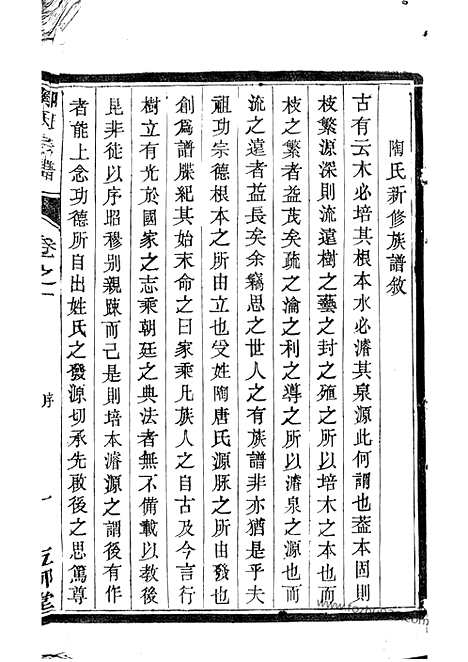 陶氏新修族譜敘
古有云木必培其根本水必濬其泉源此何謂也葢本固則
枝繁源深則流遠樹之藝之封之殖之所以培木之本也而
枝之繁者益茂矣疏之瀹之利之導之所以濬泉之源也而
流之遠者益長矣余竊思之世人之有族譜非亦猶是乎夫
祖功宗德根本之所由立也受姓陶唐氏源脉之所由發也
創為譜牒紀其始末命之曰家乘凡族人之自古及今言行
樹立有光於國家之志乘朝廷之典法者無不備載以教後
昆非徒以序昭穆别親踈而已是則培本濬源之謂後有作
者能上念功德所自出姓氏之發源切承先啟後之思篤尊
卷之一
序
一